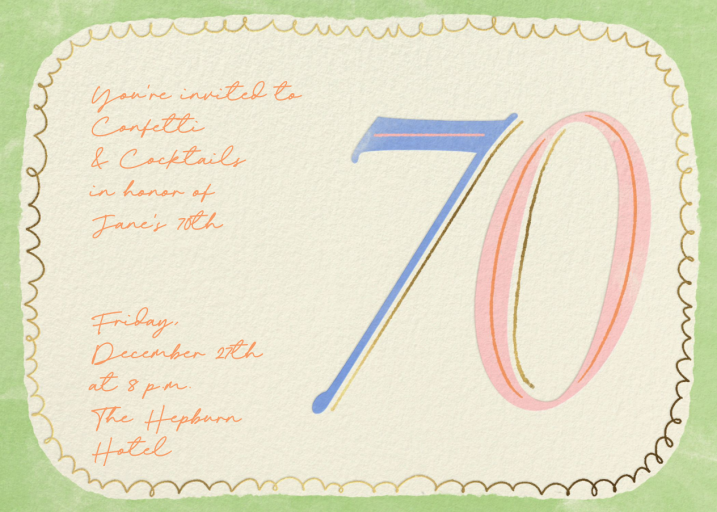 You're invited to
Confetti
& Cocktails
in honor of
Jane's 70th
Friday,
December 27th
at 8 p.m.
The Hepburn
Hotel
70